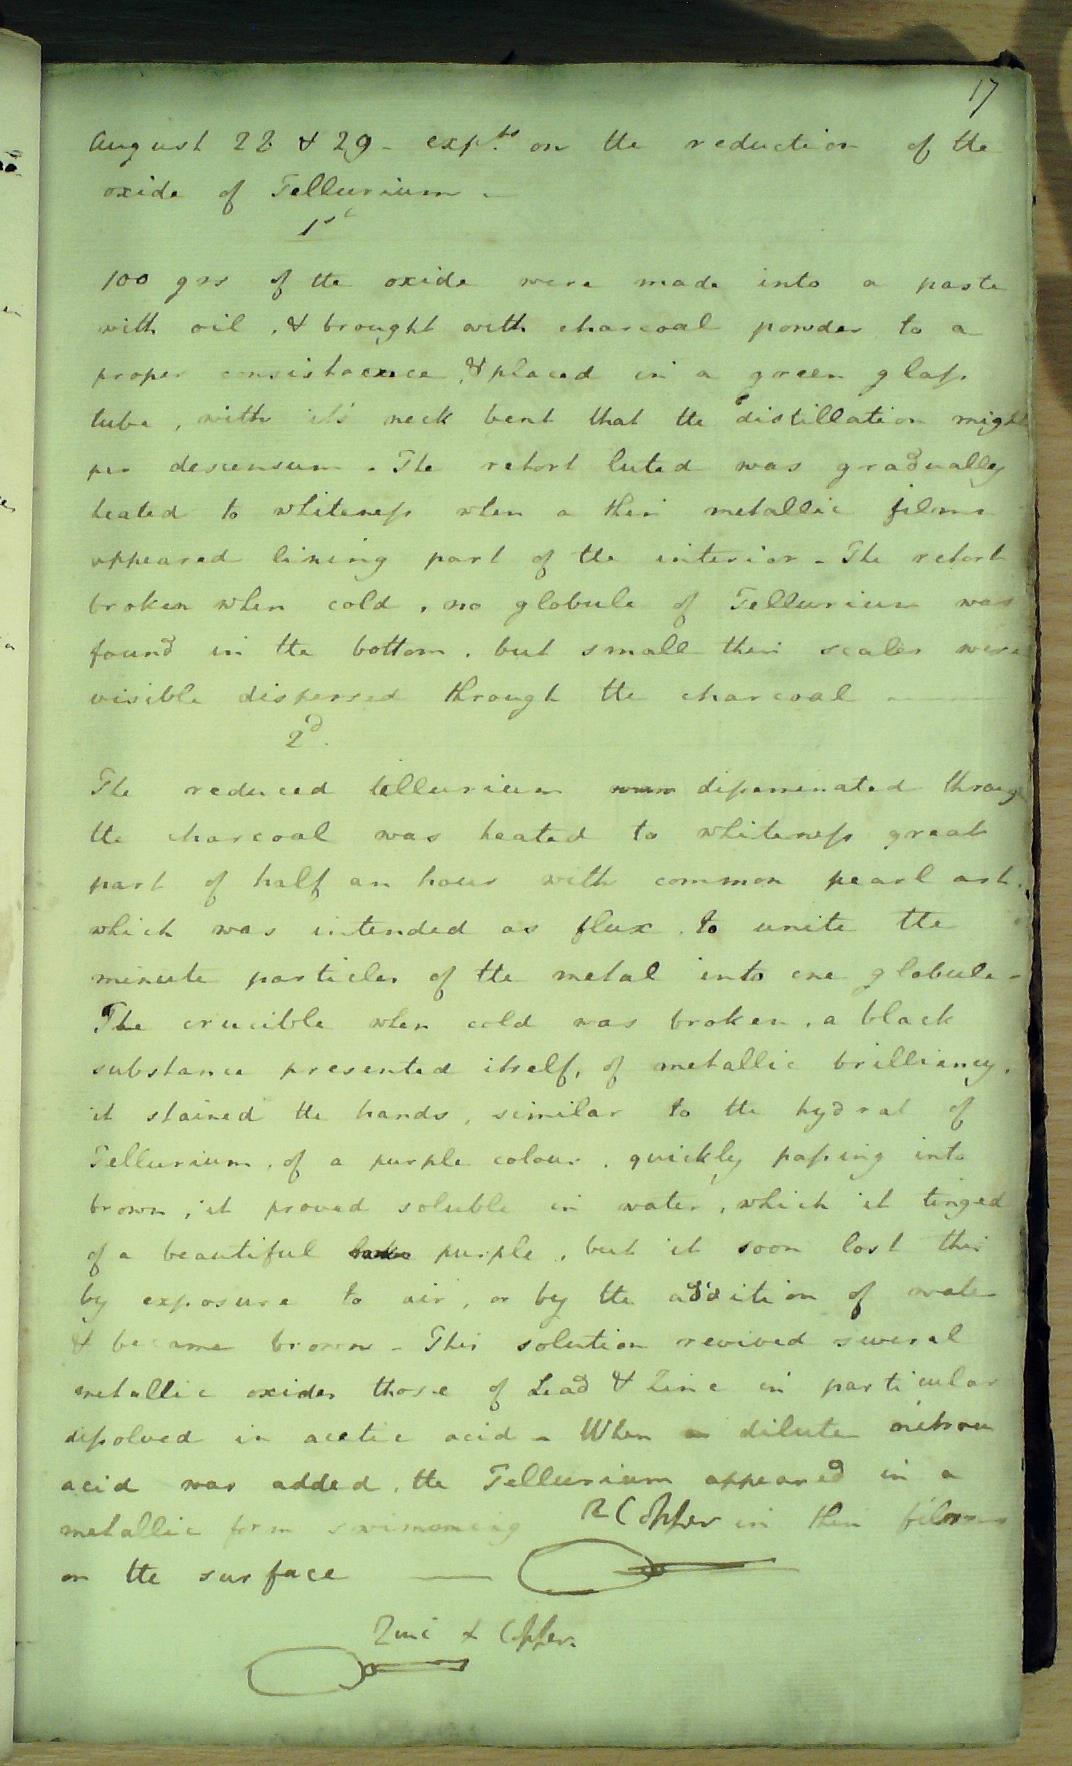 17
August 28 & 29 - expts. on the reduction of the
oxide of Tellurium -
1st
100 grs of the oxide were made into a paste
with oil, & brought with charcoal powder to a
proper consistence, & placed in a green glass
tube, with its neck bent that the distillation might
per descensum. The retort luted was gradually
heated to whiteness when a thin metallic film
appeared lining part of the interior - The retort
broken when cold, no globule of Tellurium was
found in the bottom, but small thin scales were
visible dispersed through the charcoal -
2d.
The reduced tellurium disseminated through
the charcoal was heated to whiteness great
part of half an hour with common pearl ash,
which was intended as flux, to unite the
minute particles of the metal into one globule -
The crucible when cold was broken, a black
substance presented itself, of metallic brilliancy,
it stained the hands, similar to the hydrat of
Tellurium, of a purple colour, quickly passing into
brown, it proved soluble in water, which it tinged
of a beautiful purple, but it soon lost this
by exposure to air, or by the addition of water
& became brown - This solution revived several
metallic oxides those of Lead & Zinc in particular
dissolved in acetic acid - When dilute nitrous
acid was added, the Tellurium appeared in a
metallic form swimming in thin films
Copper
on the surface
Zinc & Copper.